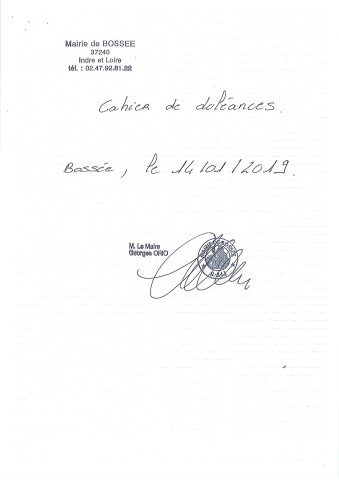 Mairie de BOSSEE
37240
Indre et Loire
tél. : 02.47.92.81.22
Cahier de doléances.
Bossée, le 14/01/2019.
M. Le Maire
Georges ORIO